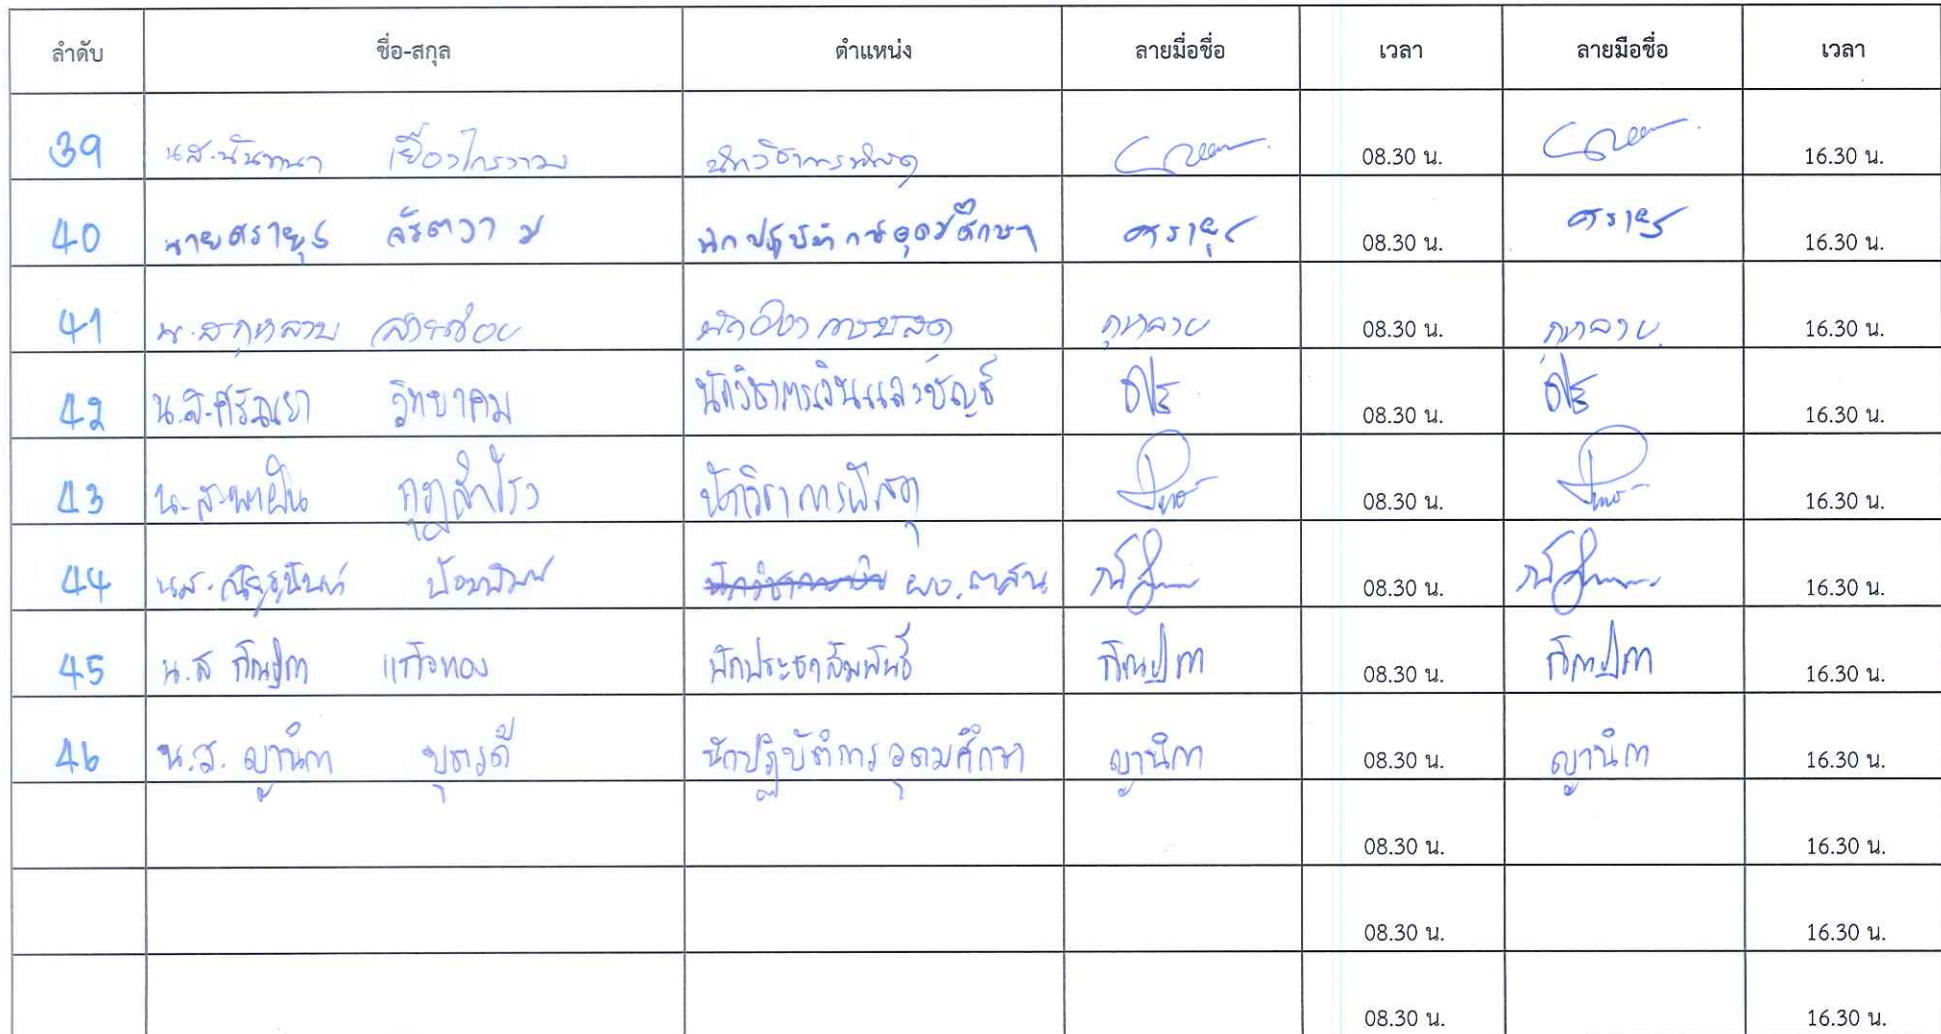 ลำดับ ชื่อ-สกุล ตำแหน่ง ลายมือชื่อ เวลา ลายมือชื่อ เวลา
39 น.ส.นันทนา นักวิชาการพัสดุ 08.30 น. 16.30 น.
40 นายศรายุธ จรัตวาม นักปฏิบัติการอุดมศึกษา ศรายุธ 08.30 น. ศรายุธ 16.30 น.
41 น.ส.กุหลาบ สายสร้อย กุหลาบ 08.30 น. กุหลาบ 16.30 น.
42 น.ส.ศรัณยา วิทยาคม นักวิชาการเงินและบัญชี 08.30 น. 16.30 น.
43 น.ส.พาฝัน กุฎสำโรง นักวิชาการพัสดุ 08.30 น. 16.30 น.
44 น.ส. 08.30 น. 16.30 น.
45 น.ส แก้วทอง นักประชาสัมพันธ์ 08.30 น. 16.30 น.
46 น.ส. ญานิกา บุตรดี นักปฏิบัติการอุดมศึกษา ญานิกา 08.30 น. ญานิกา 16.30 น.
08.30 น. 16.30 น.
08.30 น. 16.30 น.
08.30 น. 16.30 น.